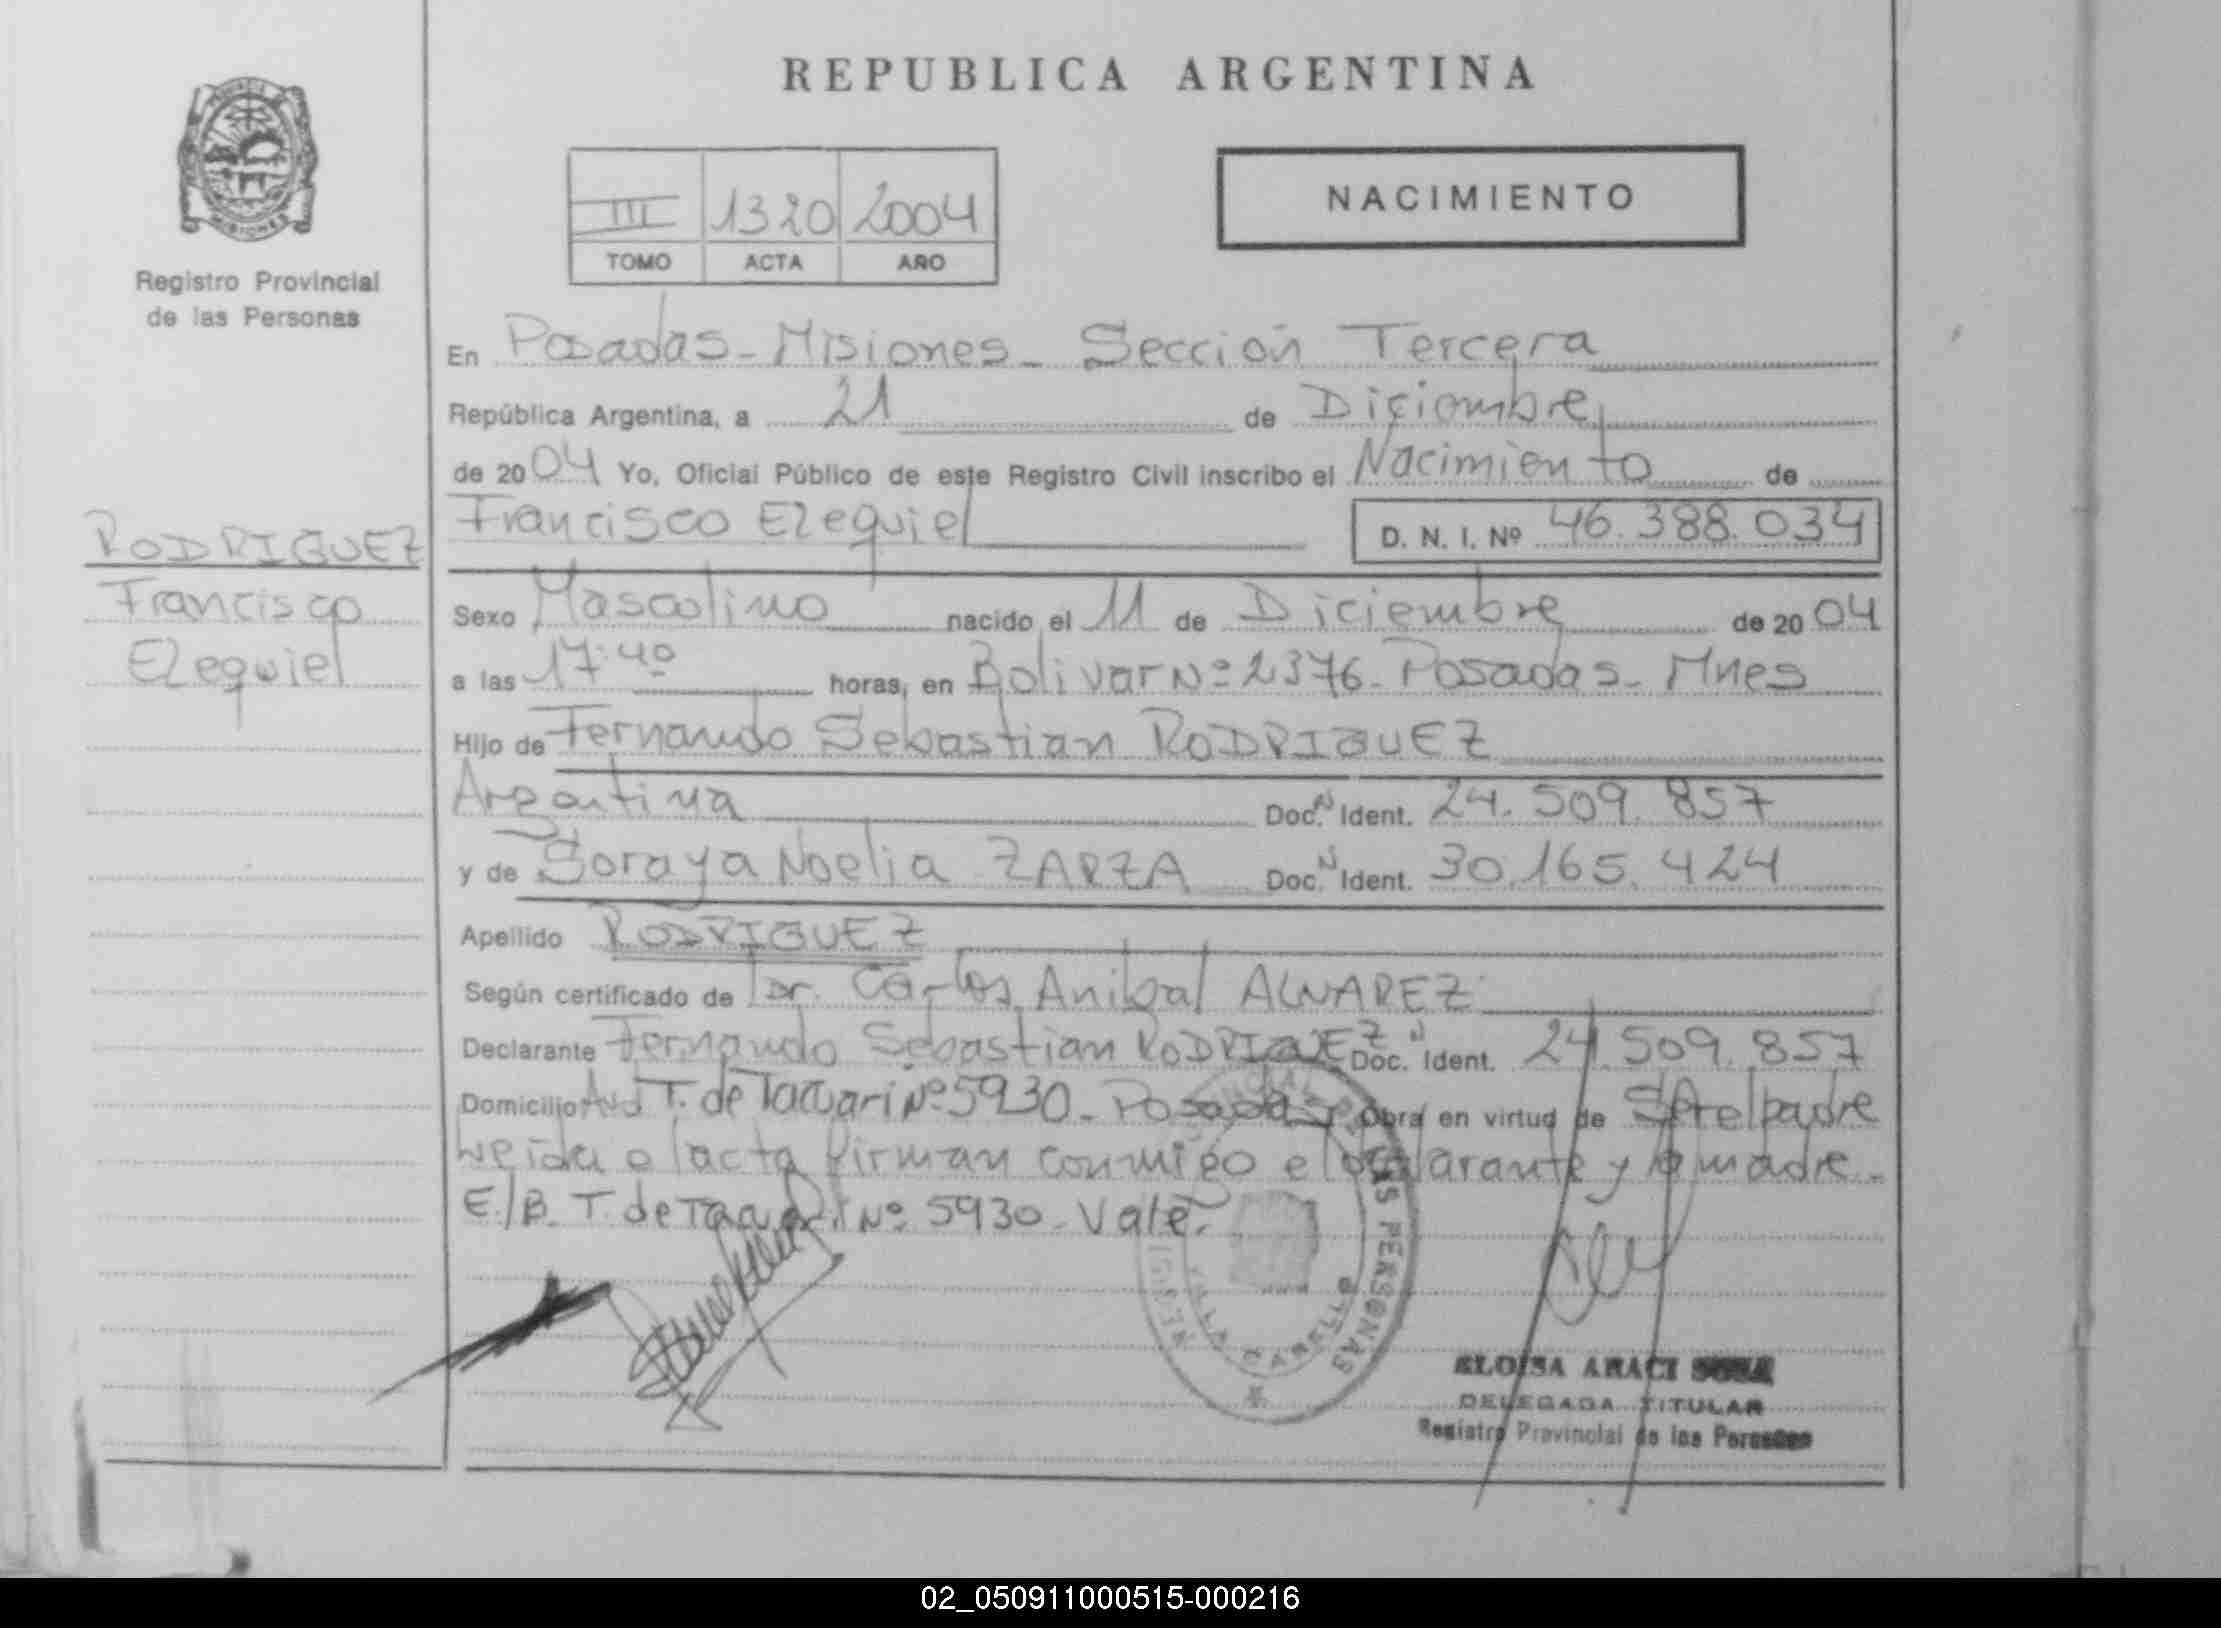 REPUBLICA ARGENTINA
PROVINCIA
MISIONES
Registro Provincial
de las Personas
III 1320 2004
TOMO ACTA AÑO
NACIMIENTO
En Posadas - Misiones - Sección Tercera
República Argentina, a 21 de Diciembre
de 2004 Yo, Oficial Público de este Registro Civil inscribo el Nacimiento de
Francisco Ezequiel D. N. I. Nº 46.388.034
RODRIGUEZ
Francisco
Ezequiel
Sexo Masculino nacido el 11 de Diciembre de 2004
a las 17:40 horas, en Bolivar Nº 2376 - Posadas - Mnes
Hijo de Fernando Sebastian RODRIGUEZ
Argentina Doc. N Ident. 24.509.857
y de Soraya Noelia ZARZA Doc. N Ident. 30.165.424
Apellido RODRIGUEZ
Según certificado de Dr. Carlos Anibal ALVAREZ
Declarante Fernando Sebastian RODRIGUEZ Doc. N Ident. 24.509.857
Domicilio T. de Tacuari Nº 5930 - Posadas Obra en virtud de Ser el padre
Leida el acta firman conmigo el declarante y la madre -
E/B. T. de Tacuari Nº 5930 - Vale.
LAS PERSONAS
VILLA CABELLO
ELOISA ARACI SOSA
DELEGADA TITULAR
Registro Provincial de las Personas
02_050911000515-000216